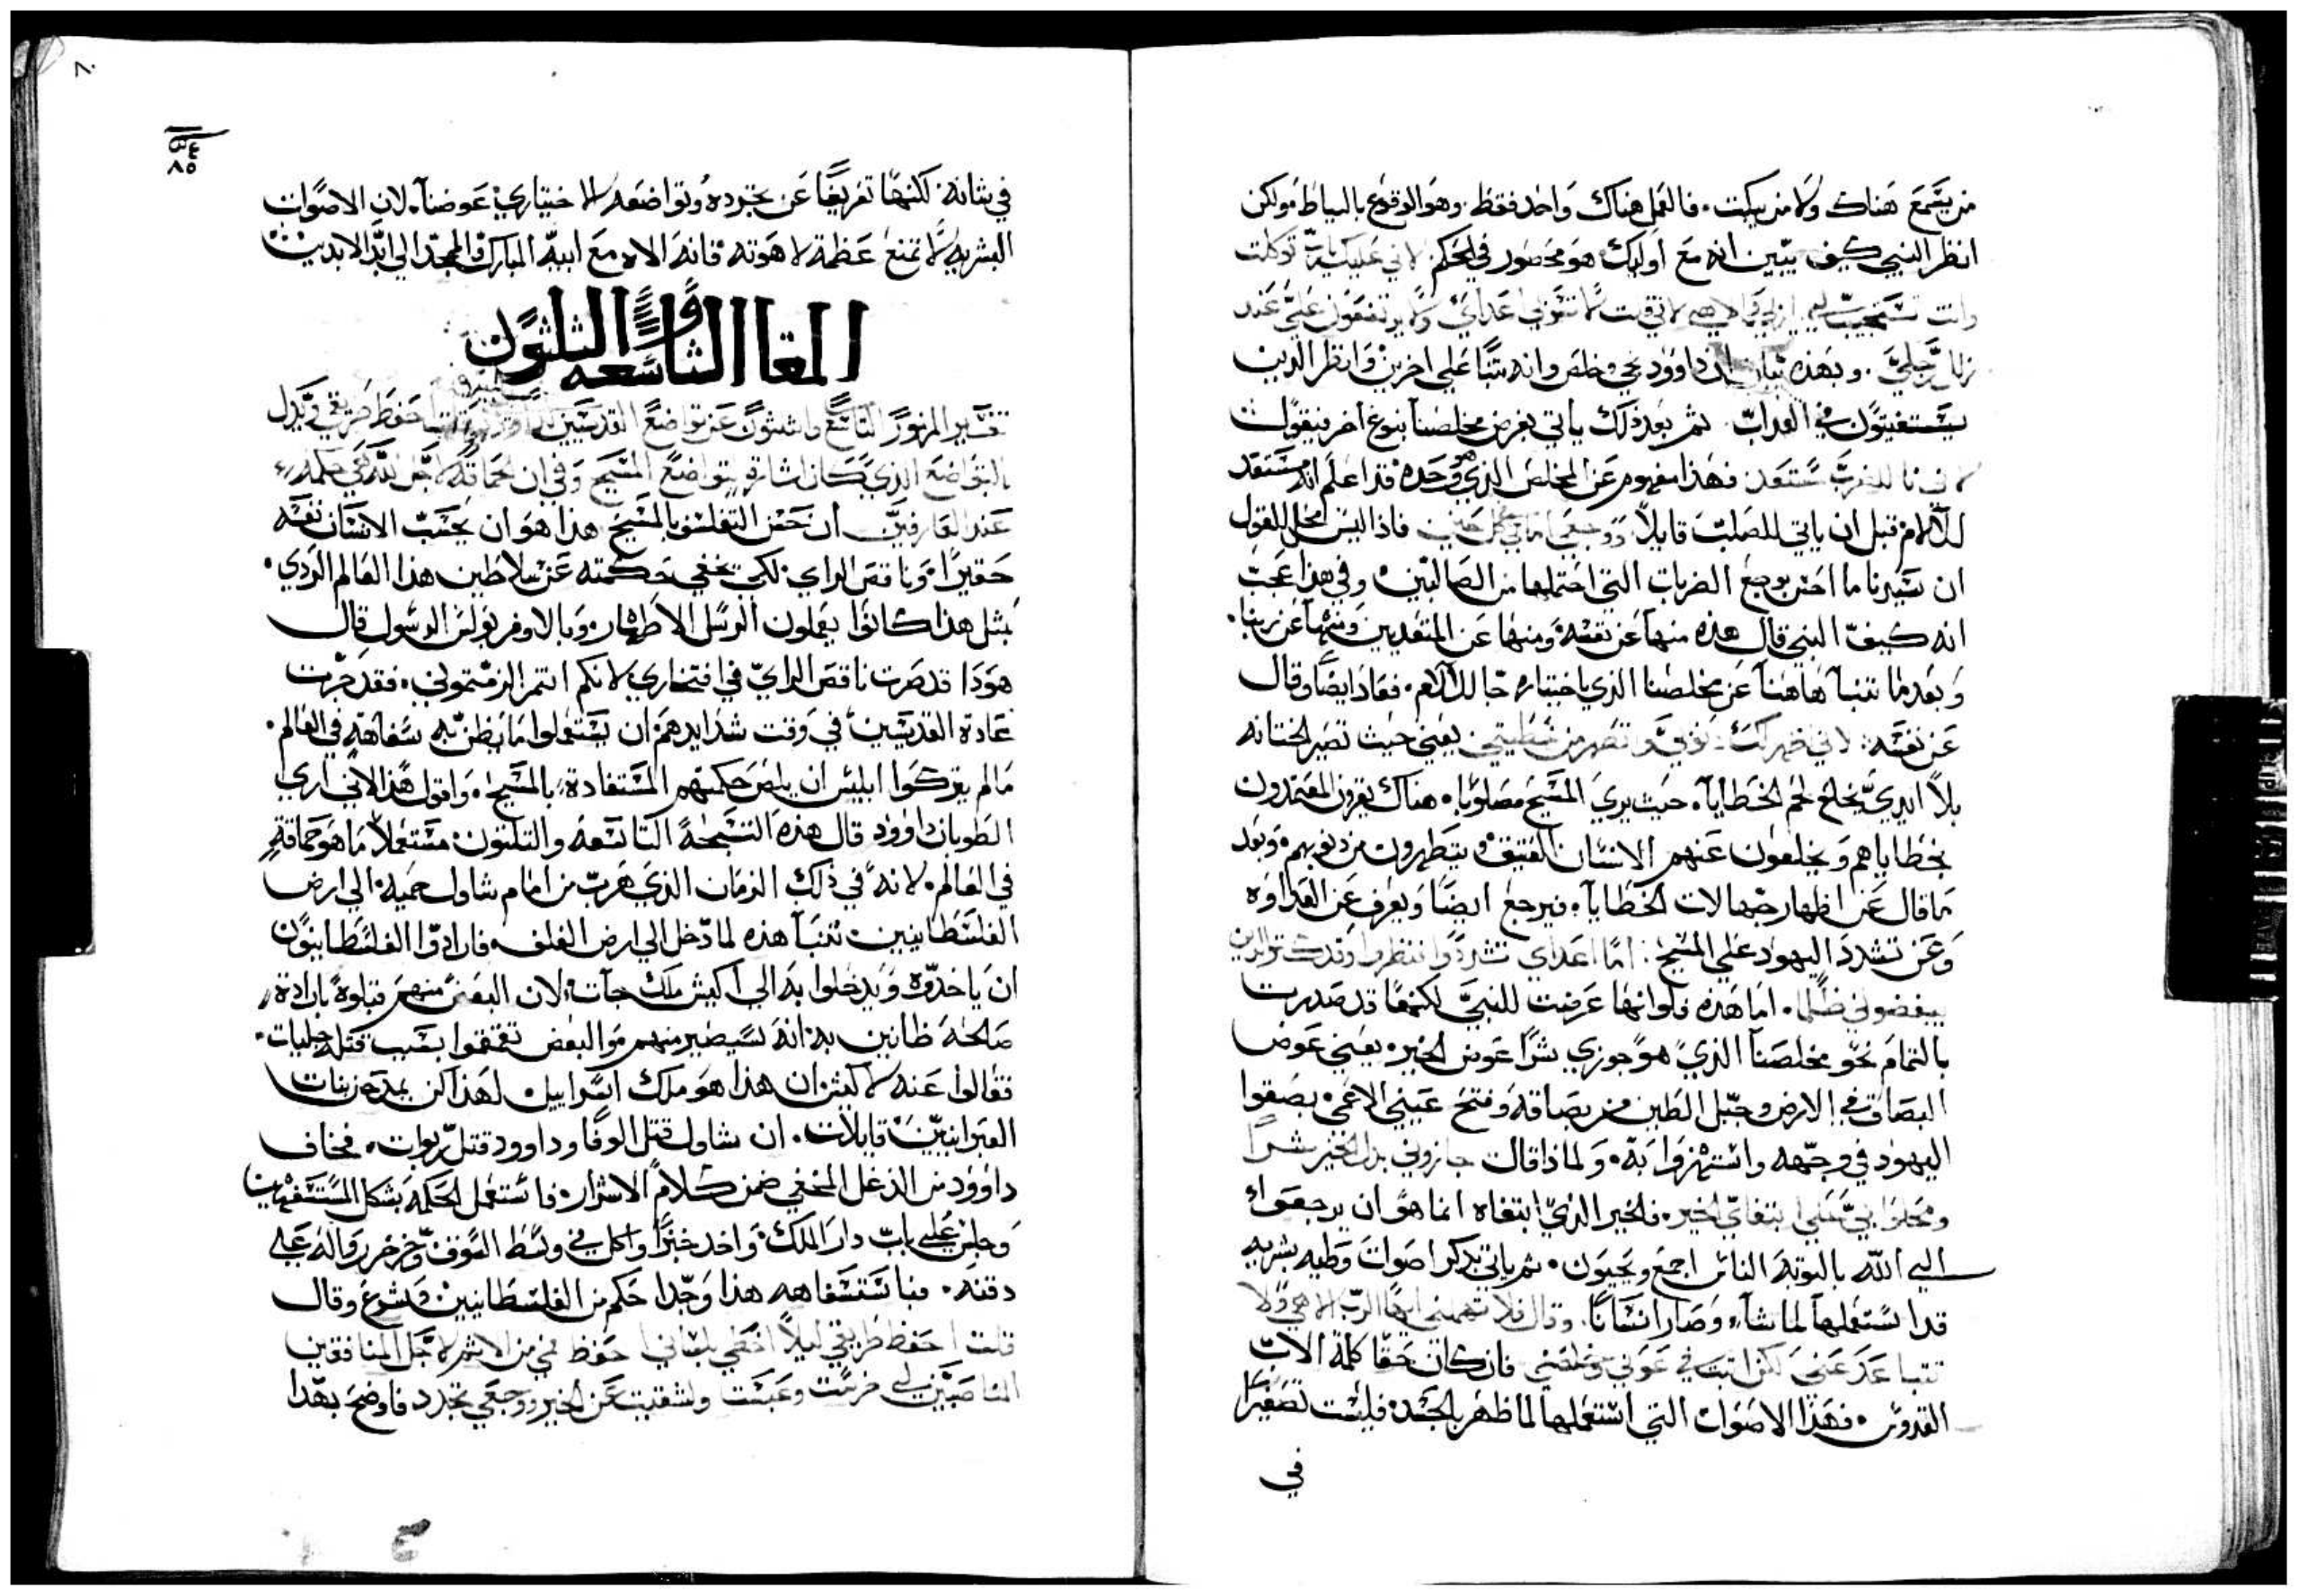 من يقمع هناك ولا من يبكت. فالعمل هناك واحد فقط. وهو الوقوع بالسياط ولكن
انظر النبي كيف يبين انه مع اوليك هو محصور في الحكم. لاني عليك يا رب توكلت
وانت تستجيب لي يا ربي والاهي لاني قلت لا تشمت بي اعداي ولا يرتفعون علي عند
زلل رجلي. وبهذه بيان ان داوود نجي وخلص وانه تنبا علي اخرين وانظر الدين
يستغيثون في العداب. ثم بعد ذلك ياتي بغرض مخلصنا بنوع اخر فيقول
لاني انا للضرب مستعد فهذا مفهوم عن المخلص الذي هو وحده قد اعلم انه مستعد
للالام قبل ان ياتي للصلب قايلاً ووجعي امامي في كل حين فاذا ليس محل للقول
ان سيرنا ما احس بوجع الضربات التي احتملها من الصالبين وفي هذا عجب
انه كيف النبي قال هذه منها عن نفسه ومنها عن المتقدمين ومنها عن ربنا.
وبعدما تنبا هاهنا عن مخلصنا الذي باختياره جا للالام. فعاد ايضا وقال
عن نفسه: يعني حيث تصير الختانه
بلا ايدي بخلع لحم الخطايا. حيث يري المسيح مصلوبا. هناك يقرون المعتمدون
بخطاياهم ويخلعون عنهم الانسان العتيق ويتطهرون من ذنوبهم. وبعد
ما قال عن اظهار جهالات الخطايا. فيرجع ايضا ويعرف عن العداوه
وعن تشدد اليهود علي المسيح: اما اعداي تشددوا وقد كثر الدين
يبغضوني ظلما. اما هذه فلو انها عرضت للنبي لكنها قد صدرت
بالتمام نحو مخلصنا الذي هو جوزي شرا عوض الخير. يعني عوض
البصاق في الارض وجبل الطين من بصاقه وفتح عيني الاعمي بصقوا
اليهود في وجهه واستهزوا به. ولماذا قال جازوني بدل الخير شرا
ومحلوا بي ابتغاي الخير. فالخير الذي ابتغاه انما هو ان يرجعوا
الي الله بالتوبه الناس اجمع ويحيون. ثم ياتي بدكر اصوات بشريه
قد استعملها لما شاء وصار انسانا. وقال فلا تهملني ايها الرب الاهي ولا
تتباعد عني لكن التفت في عوني فان كان حقا كلمة الاب
القدوس. فهذا الاصوات التي استعملها لما ظهر بالجسد فليست تصغيرا
في
٨٠
٨٥
في شانه. لكنها تعريفا عن تجرده وتواضعه الاختياري عوضنا. لان الاصوات
البشريه لا تمنع عظمة لاهوته فانه الاه مع ابيه المبارك والمجد الي ابد الابدين
المقالة التاسعه والثلثون
تفسير المزمور التاسع والثلثون عن تواضع القديسين احفظ طريقي ويدل
بالتواضع الذي كان اشارة بتواضع المسيح وفي ان الحماقه لاجل الله هي حكمة
عند العارفين أن حسن التفلسف بالمسيح هذا هو ان يحسب الانسان نفسه
حقيرا. وناقص الراي. لكي تخفي حكمته عن سلاطين هذا العالم الردي.
مثل هذا كانوا يعملون الرسل الاطهار. وبالاوفر بولس الرسول قال
هوذا قد صرت ناقص الراي في افتخاري لانكم انتم الزمتموني. فقد جرت
عادة القديسين في وقت شدايدهم ان يستعملوا ما يظن به سفاهة في العالم.
مالم يتركوا ابليس ان يلص حكمتهم المستفادة بالمسيح. واقول هذا لاني اري
الطوبان داوود قال هذه التسبحة التاسعه والثلثون مستعملا ما هو حماقة
في العالم. لانه في ذلك الزمان الذي هرب من امام شاول حميه الي ارض
الفلسطانيين تنبا هذه لما دخل الي ارض الغلف. فارادوا الفلسطانيون
ان ياخدوه ويدخلوا به الي اكيش ملك جات. لان البعض منهم قبلوه بارادة
صالحة ظانين به انه سيصير منهم والبعض تقمقموا بسبب قتله جليات.
فقالوا عنه لاكيش ان هذا هو ملك اسراييل. لهذا كن يمدحن بنات
العبرانيين قايلات. ان شاول قتل الوفا وداوود قتل ربوات. فخاف
داوود من الدغل المخفي ضمن كلام الاشرار. فاستعمل الحكمة بشكل المستسفهين
وجلس علي باب دار الملك. واخد خبزا واكل في وسط السوق وخرخر رواله علي
دقنه. فباستسفاهه هذا وجدا حكم من الفلسطانيين وقال
قلت احفظ طريقي ليلا اخطي بلساني احفظ فمي من الاثم لاجل المنافقين
المناصبين لي خرست وعبست عن الخير ووجعي تجدد فاوضح بهذا